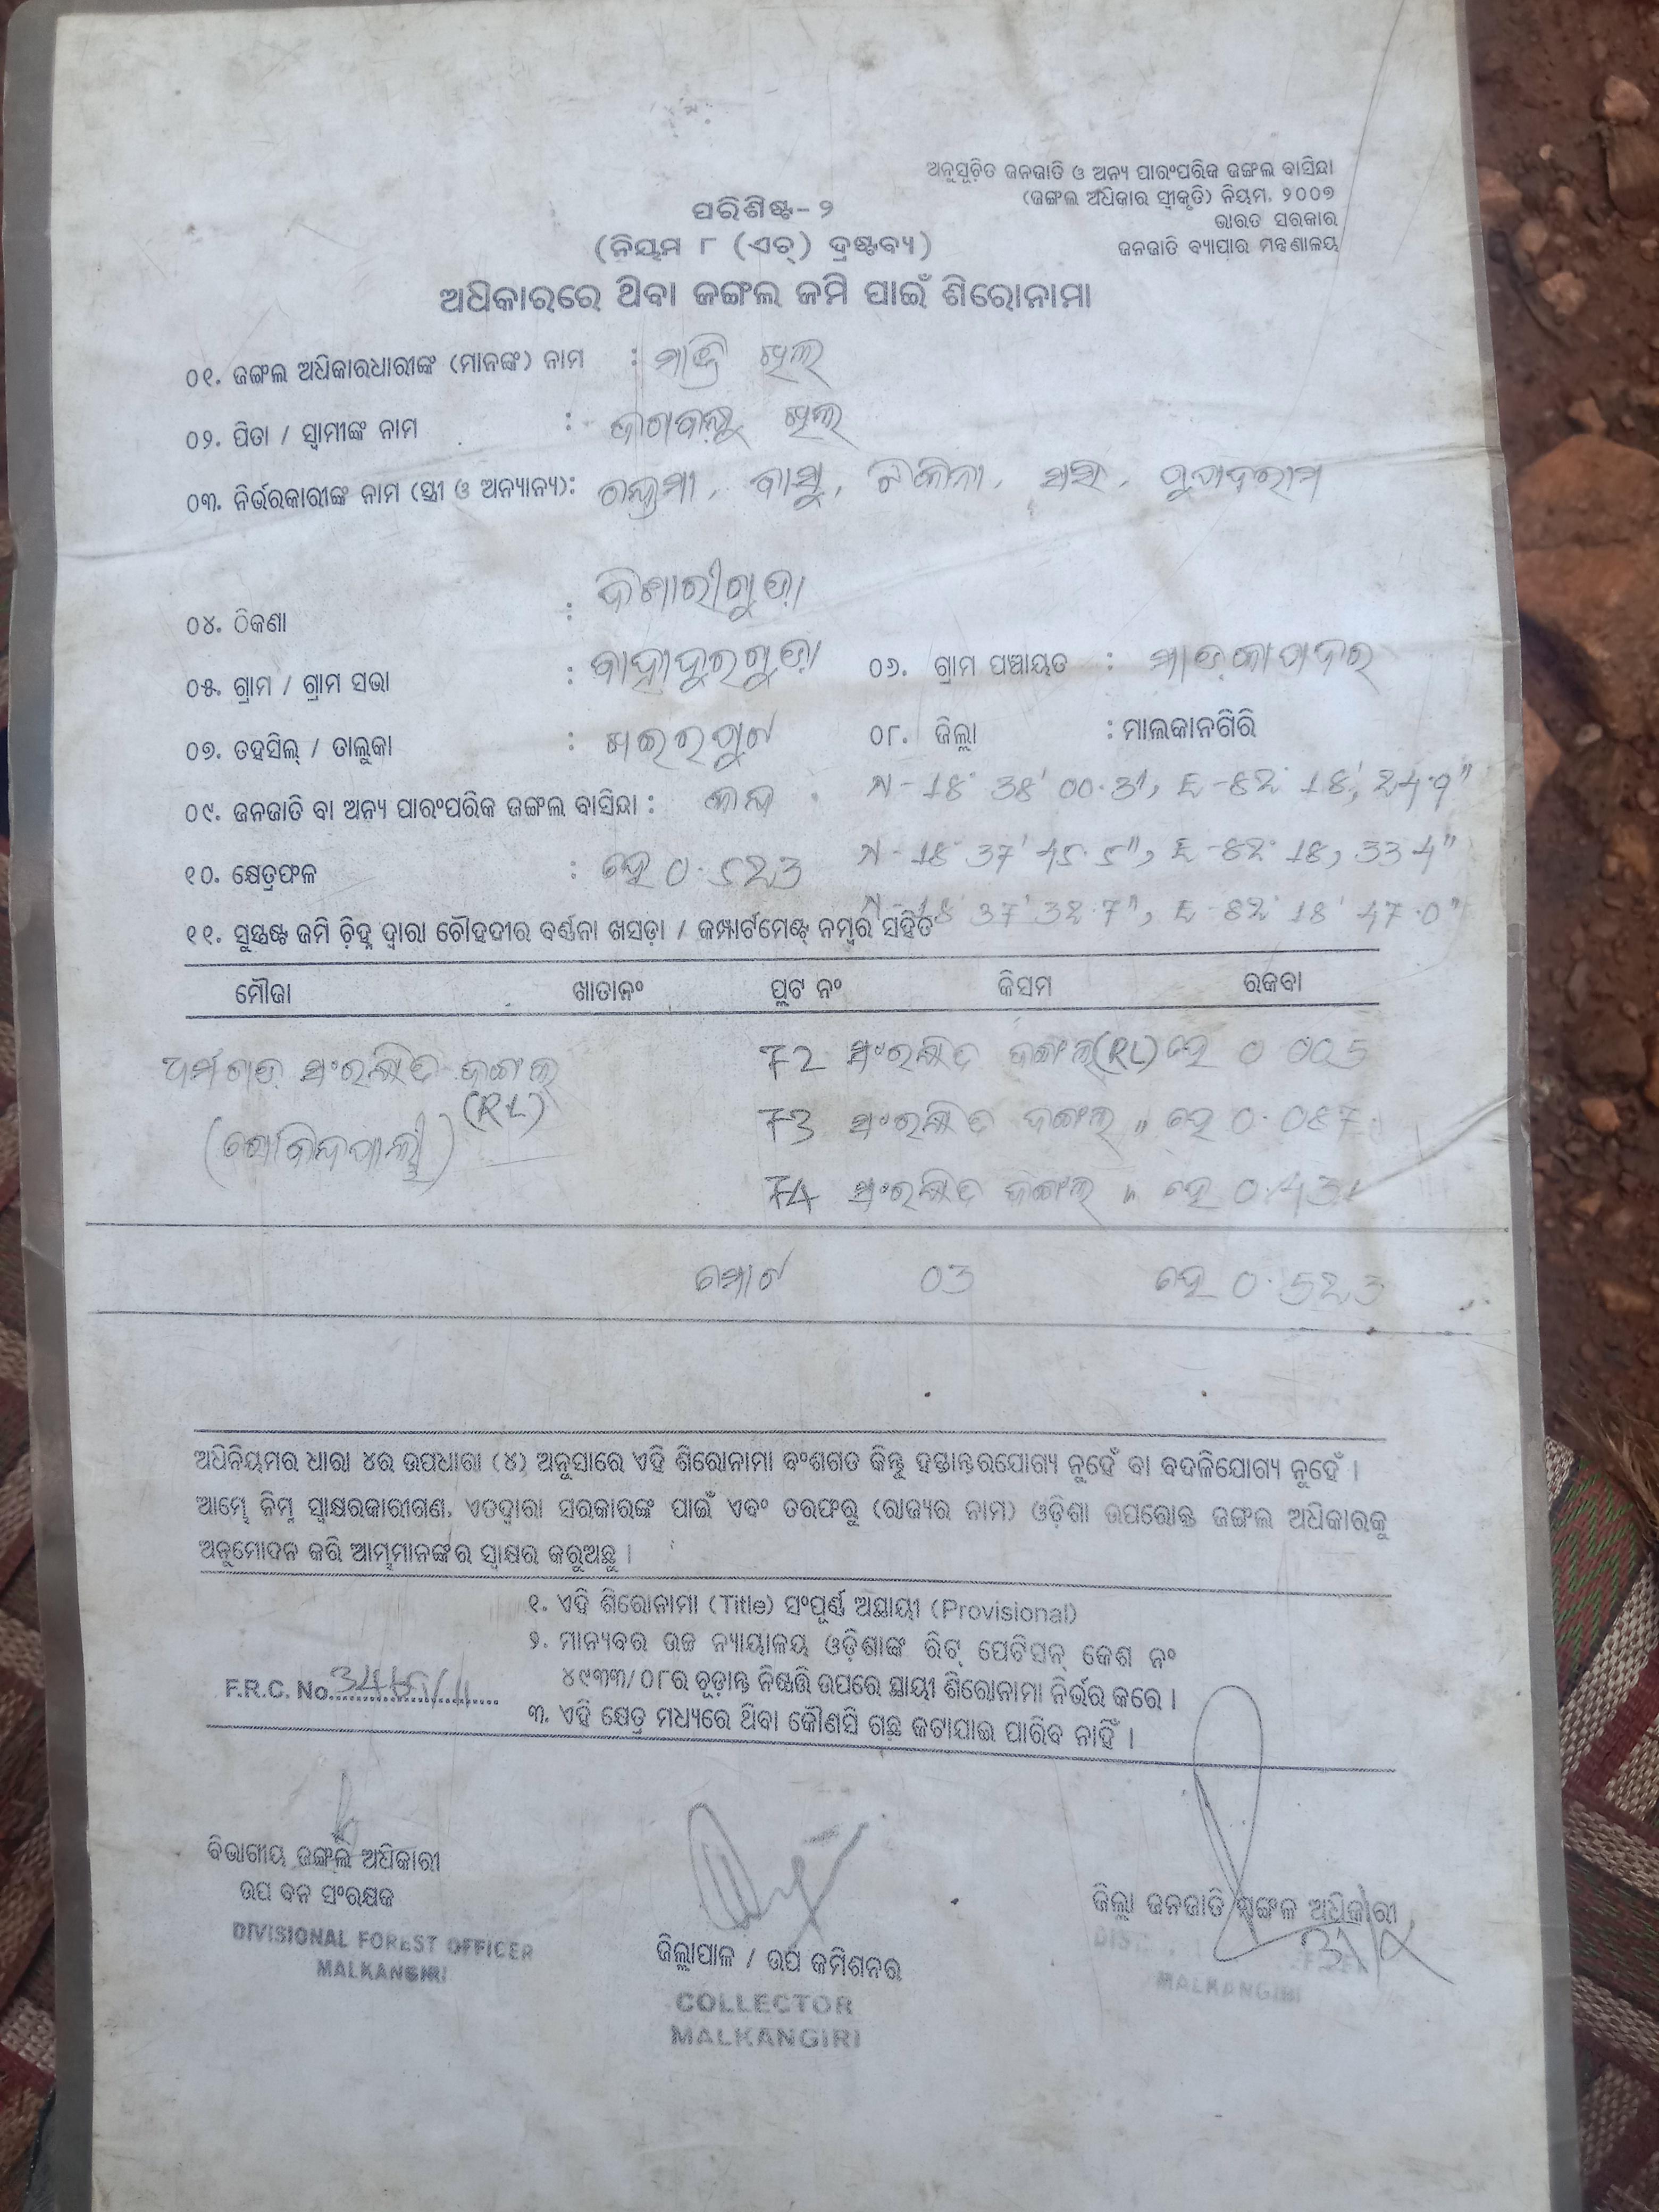 ଅନୁସୂଚିତ ଜନଜାତି ଓ ଅନ୍ୟ ପାରଂପରିକ ଜଙ୍ଗଲ ବାସିନ୍ଦା
(ଜଙ୍ଗଲ ଅଧିକାର ସ୍ୱୀକୃତି) ନିୟମ, ୨୦୦୭
ଭାରତ ସରକାର
ଜନଜାତି ବ୍ୟାପାର ମନ୍ତ୍ରଣାଳୟ
ପରିଶିଷ୍ଟ-୨
(ନିୟମ ୮ (ଏଚ୍) ଦ୍ରଷ୍ଟବ୍ୟ)
ଅଧିକାରରେ ଥିବା ଜଙ୍ଗଲ ଜମି ପାଇଁ ଶିରୋନାମା
୦୧. ଜଙ୍ଗଲ ଅଧିକାରଧାରୀଙ୍କ (ମାନଙ୍କ) ନାମ :
୦୨. ପିତା / ସ୍ୱାମୀଙ୍କ ନାମ : ଜଗବନ୍ଧୁ
୦୩. ନିର୍ଭରକାରୀଙ୍କ ନାମ (ସ୍ତ୍ରୀ ଓ ଅନ୍ୟାନ୍ୟ):
୦୪. ଠିକଣା :
୦୫. ଗ୍ରାମ / ଗ୍ରାମ ସଭା : ବାହାଦୁରଗୁଡ଼ା ୦୬. ଗ୍ରାମ ପଞ୍ଚାୟତ :
୦୭. ତହସିଲ୍ / ତାଲୁକା : ଖଇରପୁଟ ୦୮. ଜିଲ୍ଲା : ମାଲକାନଗିରି
୦୯. ଜନଜାତି ବା ଅନ୍ୟ ପାରଂପରିକ ଜଙ୍ଗଲ ବାସିନ୍ଦା : N-18° 38' 00.3", E-82° 18', 24.9"
୧୦. କ୍ଷେତ୍ରଫଳ : ହେ 0.523 N-18° 37' 45.5", E-82° 18, 33.4"
N-18° 37' 32.7", E-82° 18' 47.0"
୧୧. ସୁସ୍ପଷ୍ଟ ଜମି ଚିହ୍ନ ଦ୍ୱାରା ଚୌହଦୀର ବର୍ଣ୍ଣନା ଖସଡ଼ା / କମ୍ପାର୍ଟମେଣ୍ଟ୍ ନମ୍ବର ସହିତ
ମୌଜା ଖାତାନଂ ପ୍ଲଟ ନଂ କିସମ ରକବା
ସଂରକ୍ଷିତ ଜଙ୍ଗଲ 72 ସଂରକ୍ଷିତ ଜଙ୍ଗଲ(RL) ହେ 0 005
(RL) 73 ସଂରକ୍ଷିତ ଜଙ୍ଗଲ " ହେ 0.087
(ଗୋବିନ୍ଦପାଲ୍ଲୀ) 74 ସଂରକ୍ଷିତ ଜଙ୍ଗଲ " ହେ 0.431
ମୋଟ 03 ହେ 0.523
ଅଧିନିୟମର ଧାରା ୪ର ଉପଧାରା (୪) ଅନୁସାରେ ଏହି ଶିରୋନାମା ବଂଶଗତ କିନ୍ତୁ ହସ୍ତାନ୍ତରଯୋଗ୍ୟ ନୁହେଁ ବା ବଦଳିଯୋଗ୍ୟ ନୁହେଁ ।
ଆମ୍ଭେ ନିମ୍ନ ସ୍ୱାକ୍ଷରକାରୀଗଣ, ଏତଦ୍ୱାରା ସରକାରଙ୍କ ପାଇଁ ଏବଂ ତରଫରୁ (ରାଜ୍ୟର ନାମ) ଓଡ଼ିଶା ଉପରୋକ୍ତ ଜଙ୍ଗଲ ଅଧିକାରକୁ
ଅନୁମୋଦନ କରି ଆମ୍ଭମାନଙ୍କର ସ୍ୱାକ୍ଷର କରୁଅଛୁ ।
୧. ଏହି ଶିରୋନାମା (Title) ସଂପୂର୍ଣ୍ଣ ଅସ୍ଥାୟୀ (Provisional)
୨. ମାନ୍ୟବର ଉଚ୍ଚ ନ୍ୟାୟାଳୟ ଓଡ଼ିଶାଙ୍କ ରିଟ୍ ପେଟିସନ୍ କେଶ ନଂ
୪୯୩୩/୦୮ର ଚୂଡ଼ାନ୍ତ ନିଷ୍ପତ୍ତି ଉପରେ ସ୍ଥାୟୀ ଶିରୋନାମା ନିର୍ଭର କରେ ।
F.R.C. No.
୩. ଏହି କ୍ଷେତ୍ର ମଧ୍ୟରେ ଥିବା କୌଣସି ଗଛ କଟାଯାଇ ପାରିବ ନାହିଁ ।
ବିଭାଗୀୟ ଜଙ୍ଗଲ ଅଧିକାରୀ
ଉପ ବନ ସଂରକ୍ଷକ
DIVISIONAL FOREST OFFICER
MALKANGIRI
ଜିଲ୍ଲାପାଳ / ଉପ କମିଶନର
COLLECTOR
MALKANGIRI
ଜିଲ୍ଲା ଜନଜାତି ମଙ୍ଗଳ ଅଧିକାରୀ
MALKANGIRI